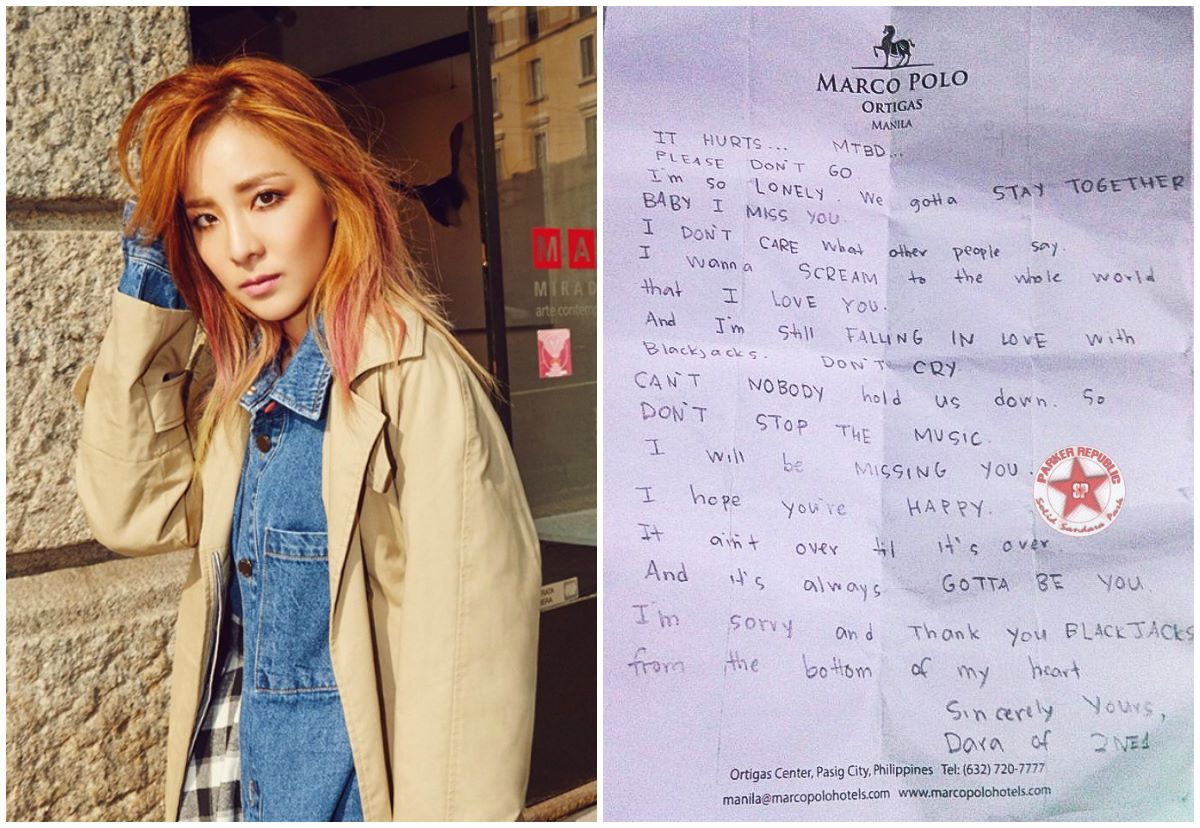 MA
MIRAD
arte contemp
MARCO POLO
ORTIGAS
MANILA
IT HURTS... MTBD...
PLEASE DON'T GO.
I'm so LONELY. We gotta STAY TOGETHER
BABY I MISS YOU.
I DON'T CARE what other people say.
I wanna SCREAM to the whole world
that I LOVE YOU.
And I'm still FALLING IN LOVE with
Blackjacks. DON'T CRY
CAN'T NOBODY hold us down. So
DON'T STOP THE MUSIC.
I will be MISSING YOU.
I hope you're HAPPY.
It ain't over til it's over.
And it's always GOTTA BE YOU.
I'm sorry and Thank you BLACKJACKS
from the bottom of my heart
Sincerely Yours,
Dara of 2NE1
PARKER REPUBLIC
SP
Solid Sandara Park
Ortigas Center, Pasig City, Philippines Tel: (632) 720-7777
manila@marcopolohotels.com www.marcopolohotels.com